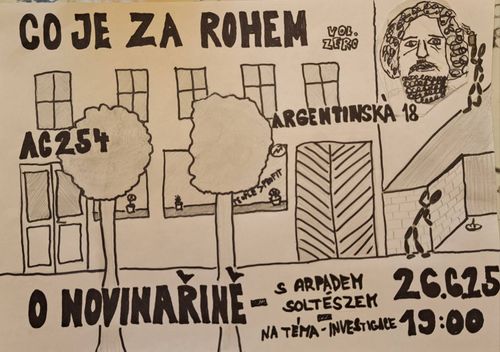 CO JE ZA ROHEM
VOL.
ZERO
ARGENTINSKÁ 18
AC254
O NOVINAŘINĚ -
S ARPÁDEM
SOLTÉSZEM
NA TÉMA - INVESTIGACE
26.6.25
19:00